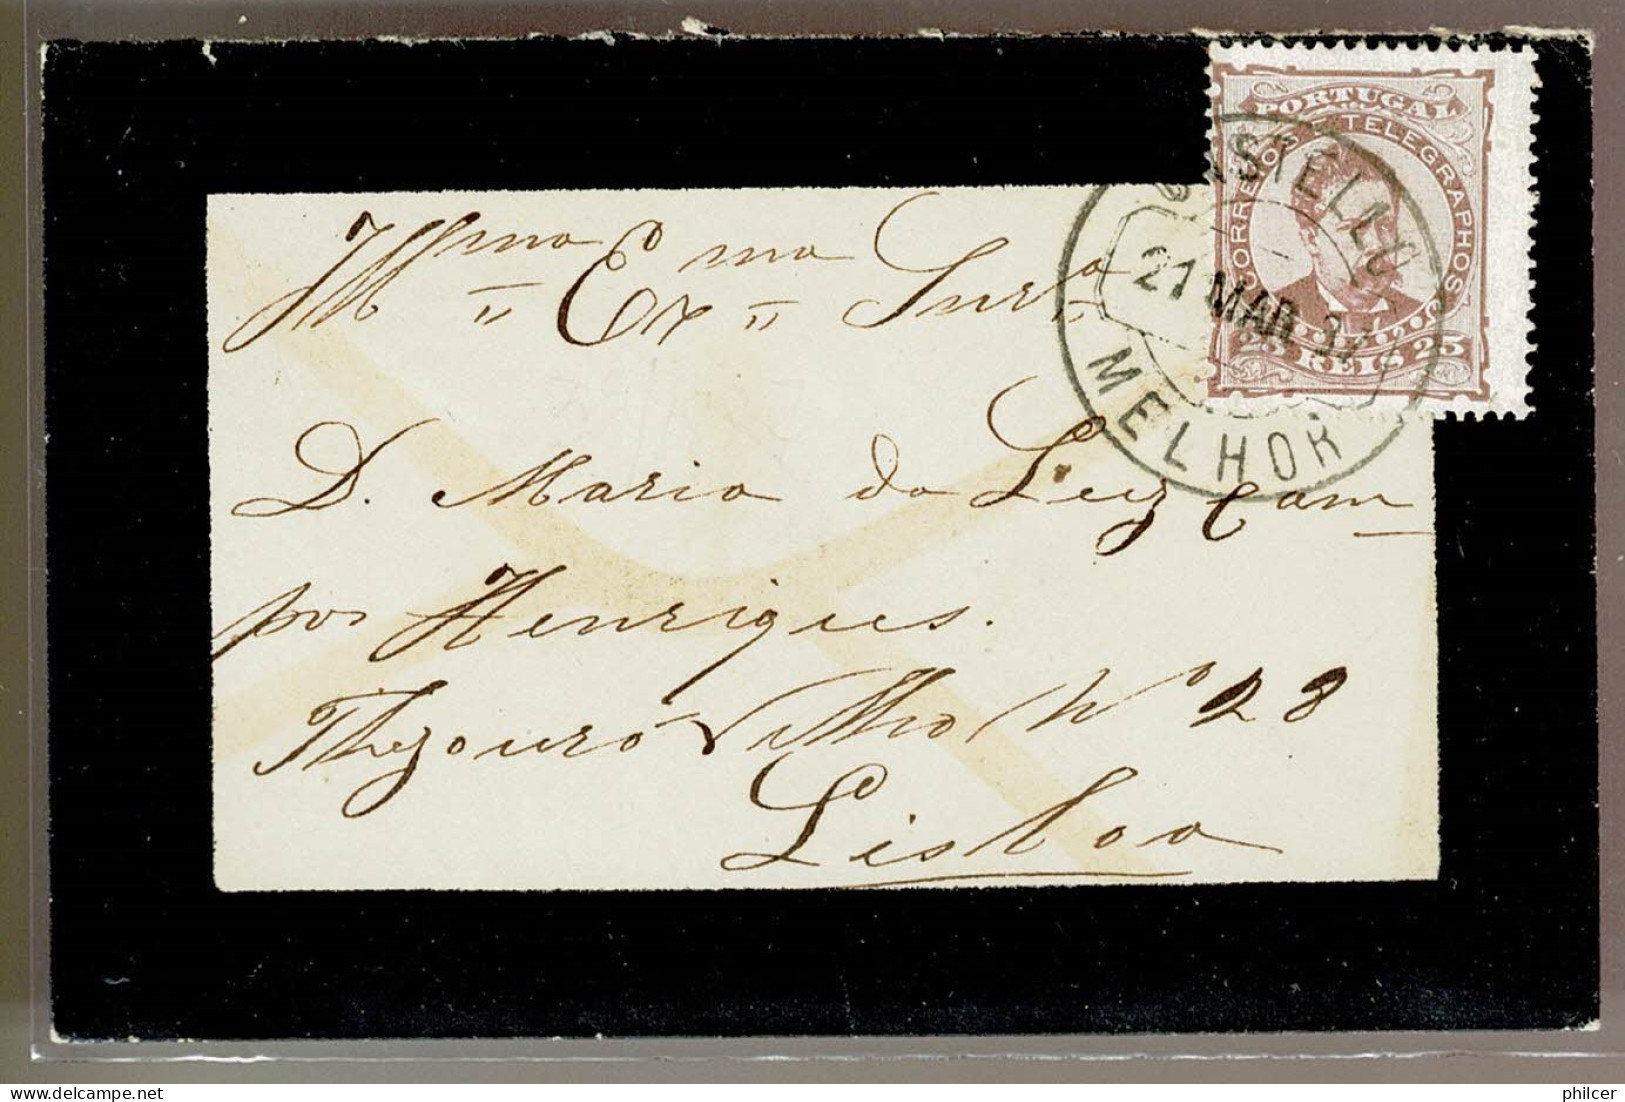 PORTUGAL
CORREIOS E TELEGRAPHOS
25 REIS 25
CASTELLO
21 MAR
MELHOR
Illma Exma Snra
D. Maria da Luz Cam-
pos Henriques.
Thezouro Velho Nº 28
Lisboa
philcer